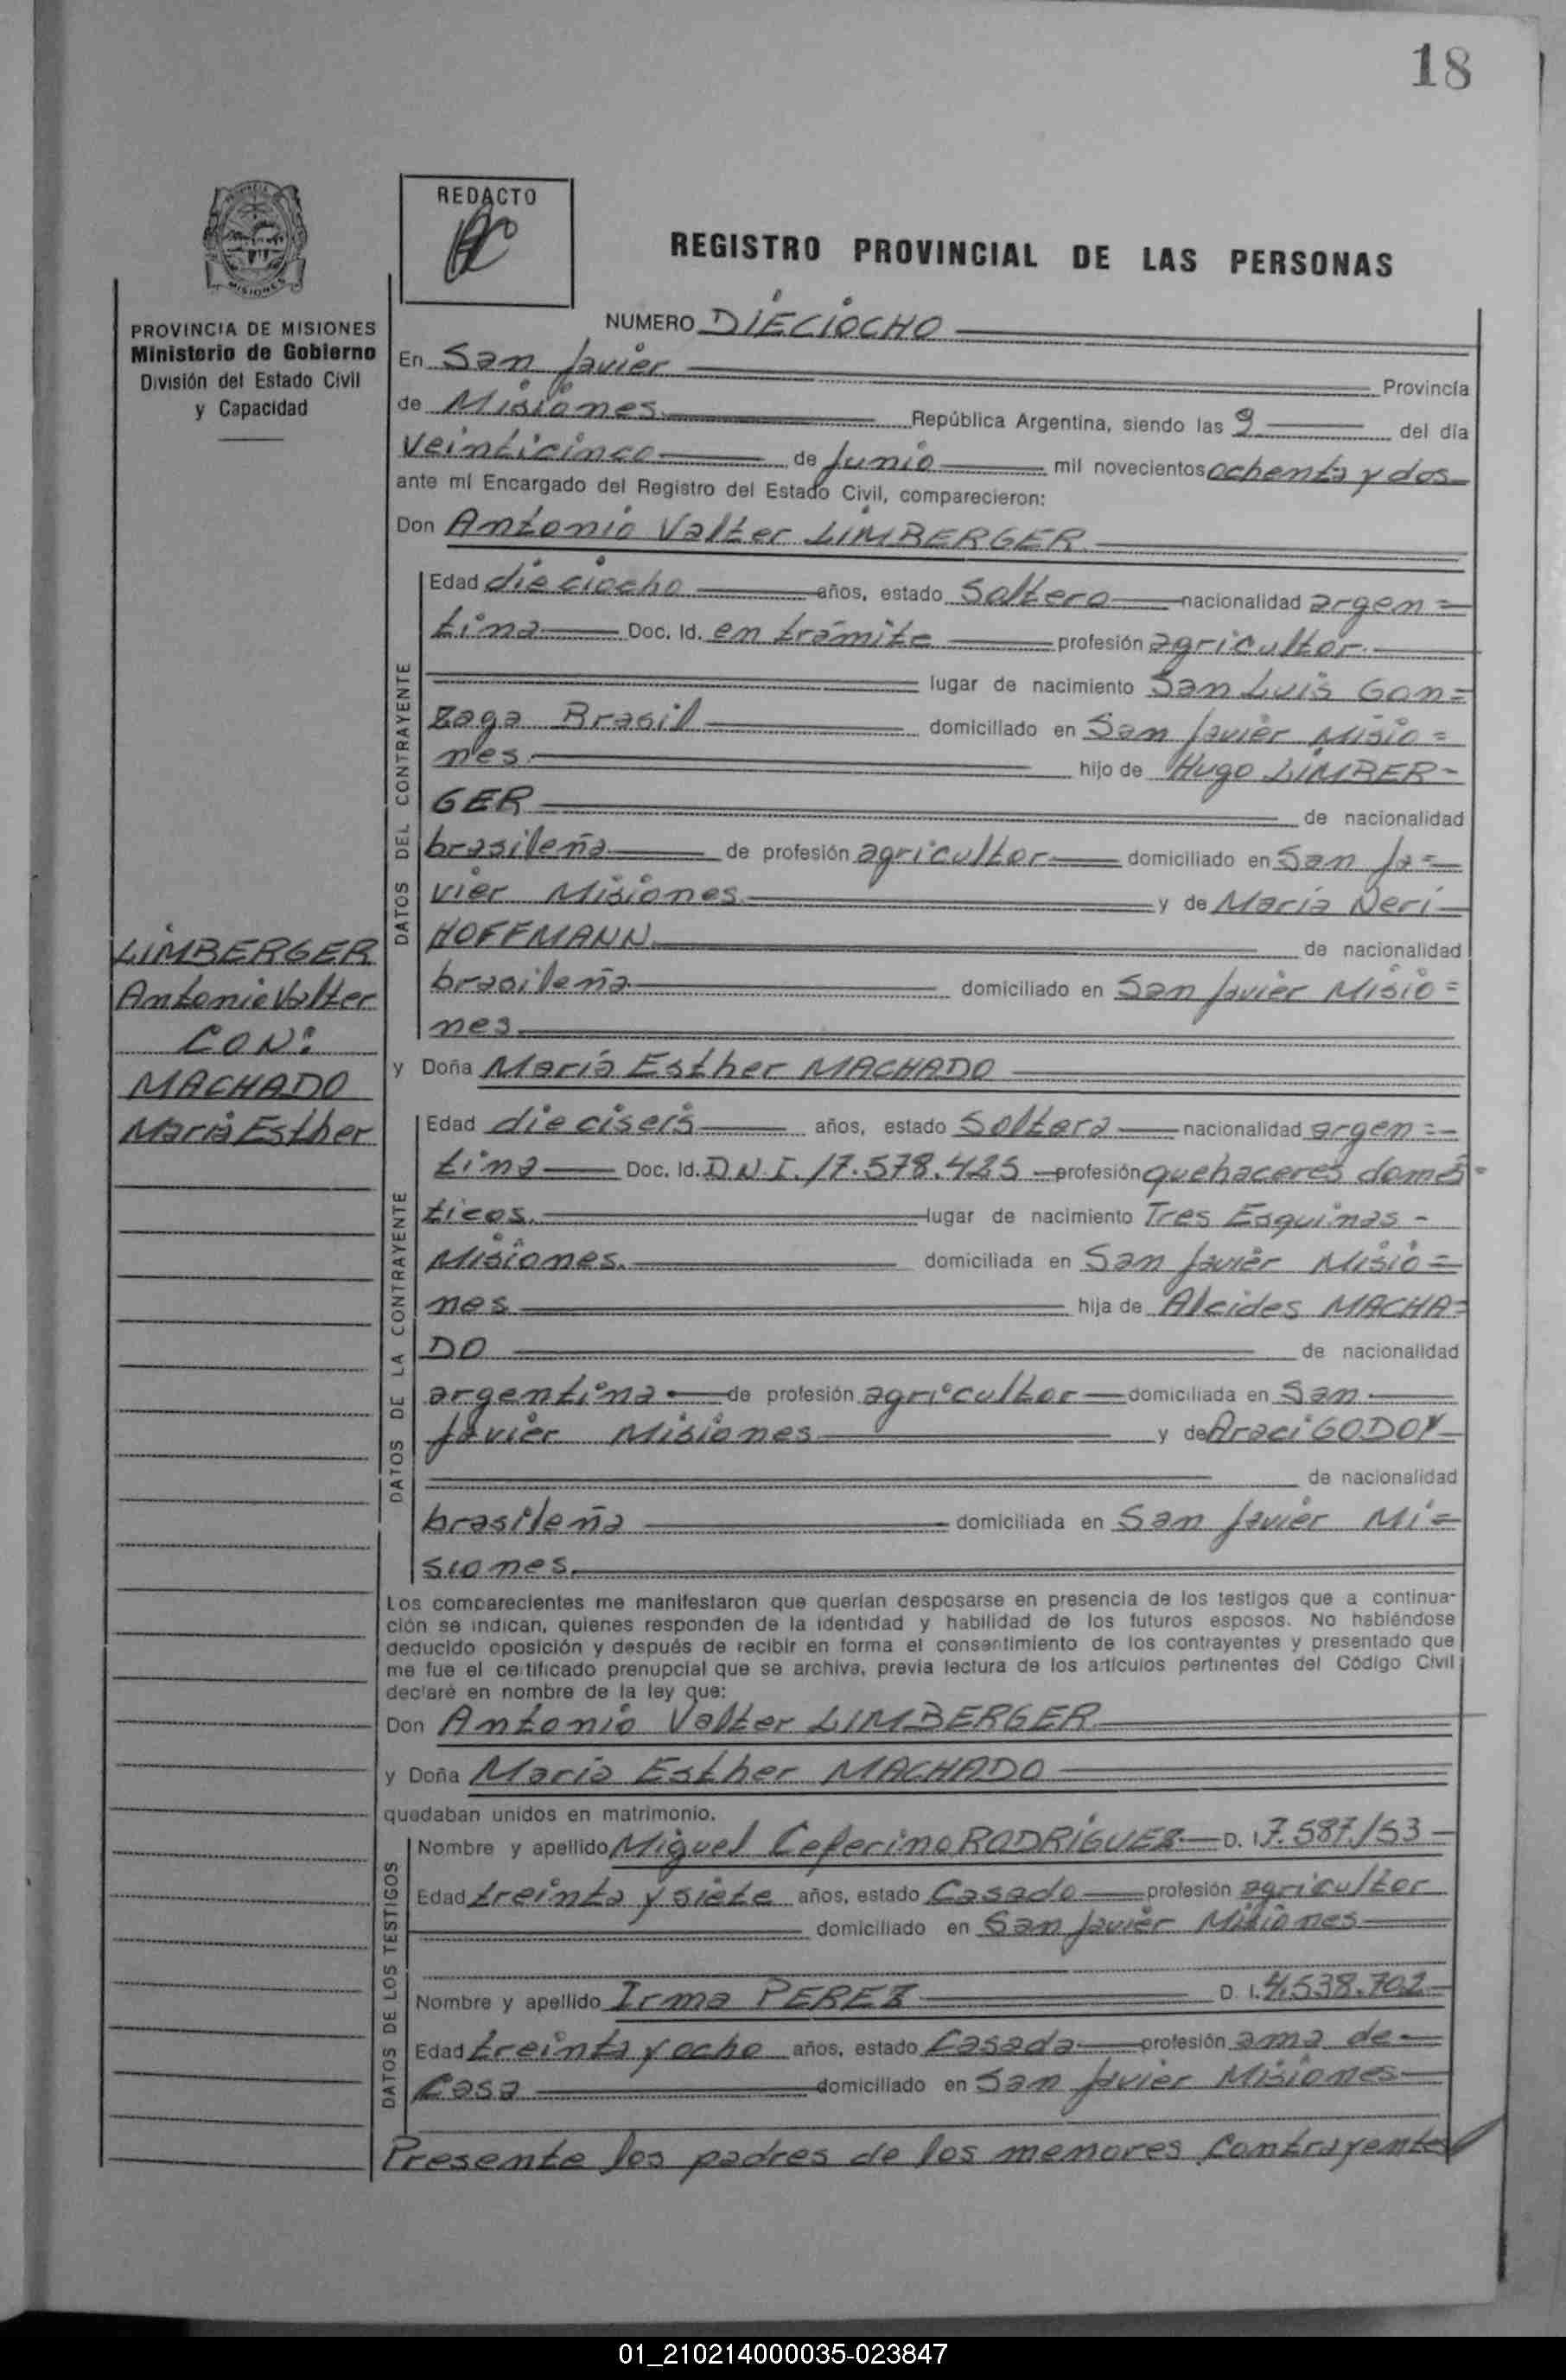 18
REDACTO
REGISTRO PROVINCIAL DE LAS PERSONAS
MISIONES
PROVINCIA DE MISIONES
Ministerio de Gobierno
División del Estado Civil
y Capacidad
NUMERO DIECIOCHO
En San Javier Provincia
de Misiones República Argentina, siendo las 9 del día
veinticinco de Junio mil novecientos ochenta y dos
ante mí Encargado del Registro del Estado Civil, comparecieron:
Don Antonio Valter LIMBERGER
DATOS DEL CONTRAYENTE
Edad dieciocho años, estado Soltero nacionalidad argen=
tina Doc. Id. en trámite profesión agricultor.
lugar de nacimiento San Luis Gon=
zaga Brasil domiciliado en San Javier Misio=
nes hijo de Hugo LIMBER-
GER de nacionalidad
brasileña de profesión agricultor domiciliado en San Ja=
vier Misiones y de María Neri
HOFFMANN de nacionalidad
brasileña domiciliado en San Javier Misio=
nes.
LIMBERGER
Antonio Valter
CON:
MACHADO
María Esther
y Doña María Esther MACHADO
DATOS DE LA CONTRAYENTE
Edad dieciseis años, estado Soltera nacionalidad argen=
tina Doc. Id. D.N.I. 17.578.425 profesión quehaceres domés-
ticos. lugar de nacimiento Tres Esquinas -
Misiones. domiciliada en San Javier Misio=
nes hija de Alcides MACHA=
DO de nacionalidad
argentina de profesión agricultor domiciliada en San
Javier Misiones y de Araci GODOY
de nacionalidad
brasileña domiciliada en San Javier Mi=
siones.
Los comparecientes me manifestaron que querían desposarse en presencia de los testigos que a continua-
ción se indican, quienes responden de la identidad y habilidad de los futuros esposos. No habiéndose
deducido oposición y después de recibir en forma el consentimiento de los contrayentes y presentado que
me fue el certificado prenupcial que se archiva, previa lectura de los artículos pertinentes del Código Civil
declaré en nombre de la ley que:
Don Antonio Valter LIMBERGER
y Doña María Esther MACHADO
quedaban unidos en matrimonio.
DATOS DE LOS TESTIGOS
Nombre y apellido Miguel Ceferino RODRÍGUEZ D. I. 7.587.153
Edad treinta y siete años, estado Casado profesión agricultor
domiciliado en San Javier Misiones
Nombre y apellido Irma PEREZ D. I. 4.538.702
Edad treinta y ocho años, estado Casada profesión ama de
Casa domiciliado en San Javier Misiones
Presente los padres de los menores Contrayentes
01_210214000035-023847